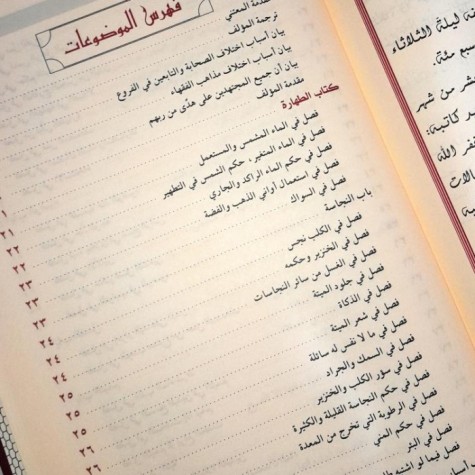 فهرس الموضوعات
مقدمة المعتني
ترجمة المؤلف
بيان أسباب اختلاف الصحابة والتابعين في الفروع
بيان أسباب اختلاف مذاهب الفقهاء
بيان أن جميع المجتهدين على هدى من ربهم
مقدمة المؤلف
كتاب الطهارة
فصل في الماء المشمس والمستعمل
فصل في الماء المتغير، حكم الشمس في التطهير
فصل في حكم الماء الراكد والجاري
فصل في استعمال أواني الذهب والفضة
فصل في السواك
باب النجاسة
فصل في الكلب نجس
فصل في الخنزير وحكمه
فصل في الغسل من سائر النجاسات
فصل في جلود الميتة
فصل في الذكاة
فصل في شعر الميتة
فصل في ما لا نفس له سائلة
فصل في السمك والجراد
فصل في سؤر الكلب والخنزير
فصل في حكم النجاسة القليلة والكثيرة
فصل في الرطوبة التي تخرج من المعدة
فصل في حكم المني
فصل في البئر
فصل فيما لو
١
٢١
٢٢
٢٢
٢٣
٢٣
٢٣
٢٤
٢٤
٢٥
٢٥
٢٥
٢٦
٢٦
ة ليلة الثلاثاء
بع مئة.
شر من شهر
د كاتبه:
فر الله
الات